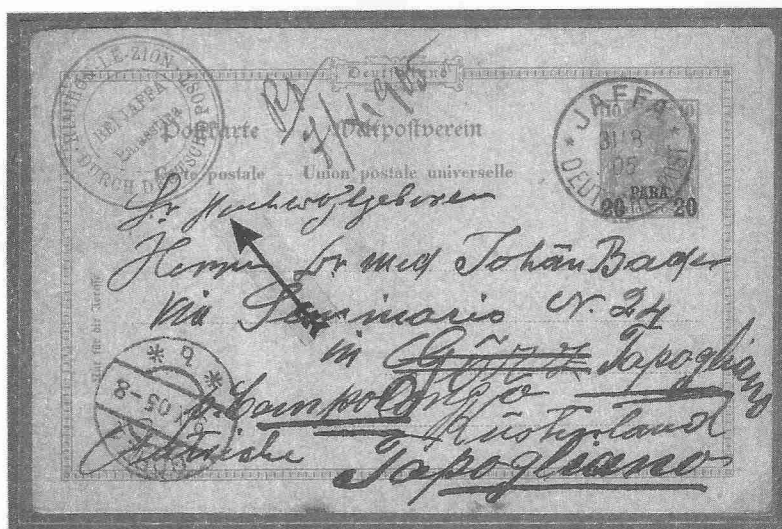 RISHON-LE-ZION
(BEI JAFFA)
Palaestina
DURCH DEUTSCHE POST
Deutschland
R/ 7/9 905
Postkarte Weltpostverein
Carte postale — Union postale universelle
* JAFFA *
31 8
05
DEUTSCHE POST
10
PARA
20 20
Sr Hochwohlgeboren
Herrn Dr med Johan Bader
Via Seminario N. 24
in Görz Tapogliano
p. Campolongo
Küstenland
Tapogliano
* b *
05-8